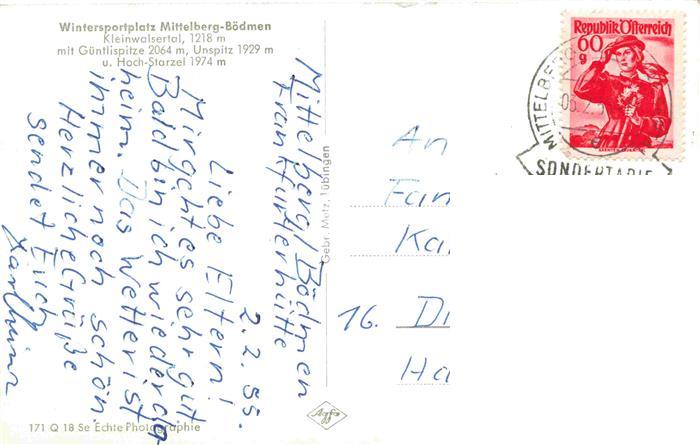 Wintersportplatz Mittelberg-Bödmen
Kleinwalsertal, 1218 m
mit Güntlispitze 2064 m, Unspitz 1929 m
u. Hoch-Starzel 1974 m
Mittelberg/Bödmen
Frankfurterhütte
2.2.55.
Liebe Eltern!
Mir geht es sehr gut
Bald bin ich wieder da
heim. Das Wetter ist
immer noch schön.
Herzliche Grüße
sendet Euch
Karlheinz
171 Q 18 Se Echte Photographie
Gebr. Metz, Tübingen
Agfa
Republik Österreich
60
g
MITTELBERG
SONDERTARIF
An
Fam
Ka
16. Di
Ha